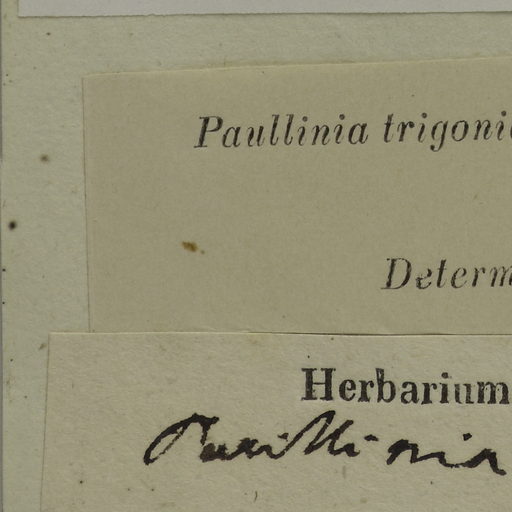 Paullinia trigoni
Determ
Herbarium
Paullinia